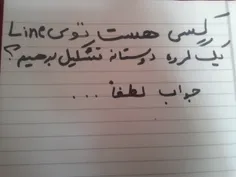 کسی هست توی Line
یک گروه دوستانه تشکیل بدهیم؟
جواب لطفاً ...